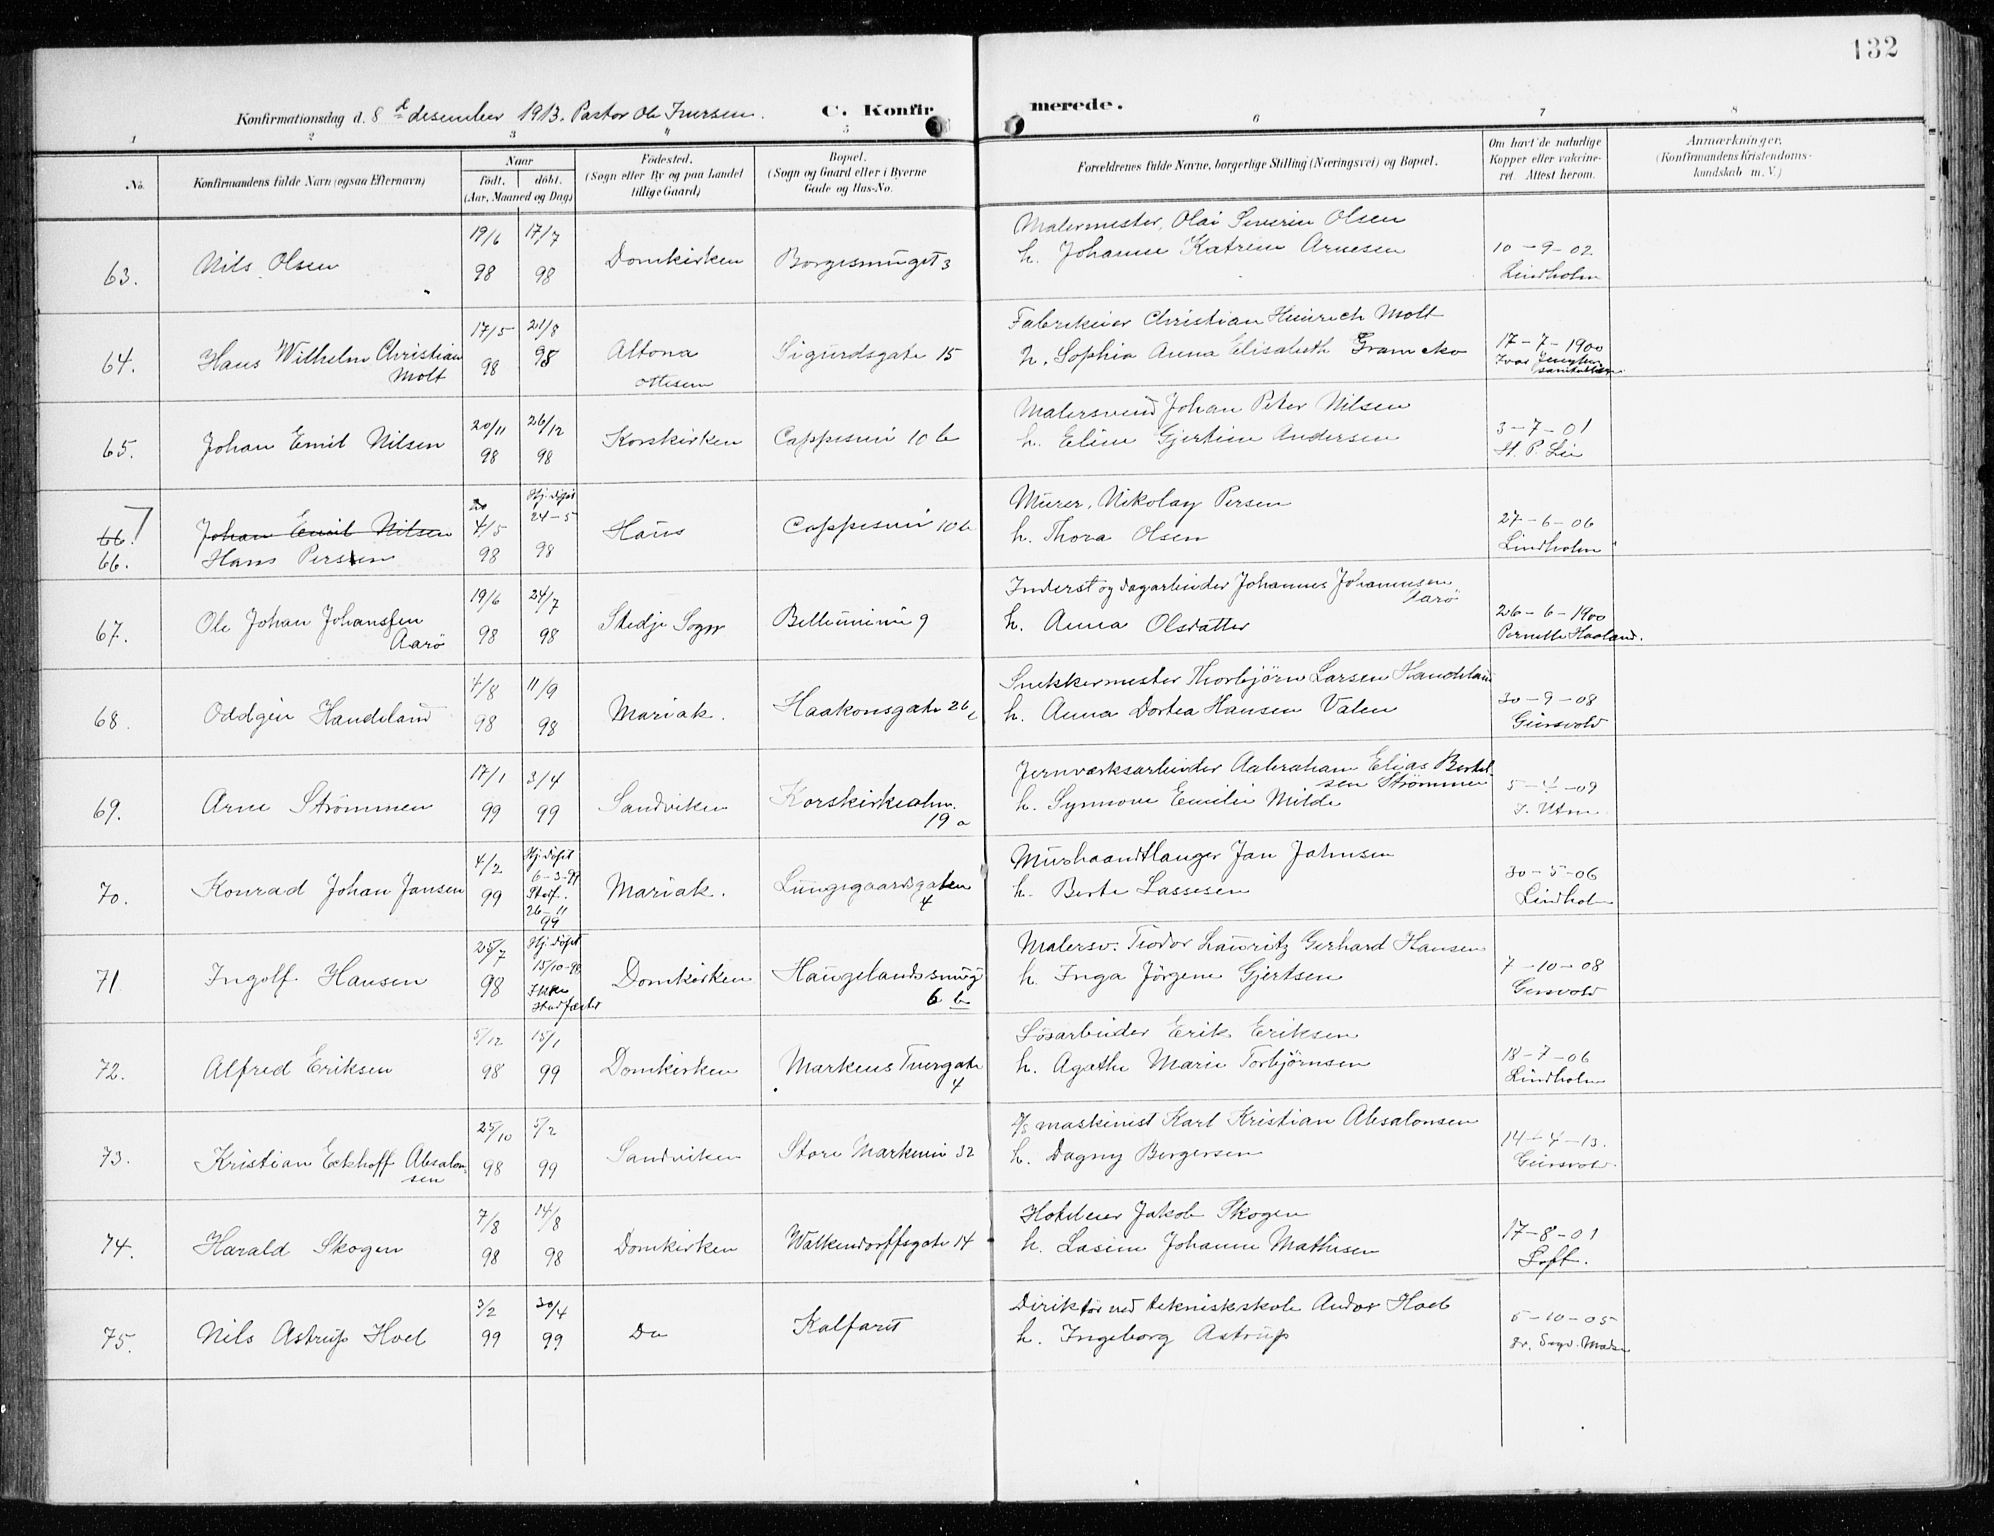 132
Konfirmationsdag d. 8 de desember 1913. Pastor Ole Iversen.
C. Konfir merede.
1 2 3 4 5 6 7 8
No.
Konfirmandens fulde Navn (ogsaa Efternavn)
Naar
Født. døbt.
(Aar, Maaned og Dag)
Fødested.
(Sogn eller By og paa Landet
tillige Gaard)
Bopæl.
(Sogn og Gaard eller i Byerne
Gade og Hus-No.
Forældrenes fulde Navne, borgerlige Stilling (Næringsvei) og Bopæl.
Om havt de naturlige
Kopper eller vaccine-
ret. Attest herom.
Anmærkninger.
(Konfirmandens Kristendoms-
kundskab m. V.)
63. Nils Olsen 19/6 98 17/7 98 Domkirken Borgesmuget 3
Malermester, Olai Severin Olsen
h. Johanne Katrine Arnesen
10-9-02
Lindholm
64. Hans Wilhelm Christian
Molt
17/5 98 21/8 98 Altona
Ottesen
Sigurdsgate 15
Fabrikeier Christian Heinrich Molt
h. Sophia Anna Elisabeth Gramcko
17-7-1900
65. Johan Emil Nilsen 20/11 98 26/12 98 Korskirken Cappesmui 10 b
Malersvend Johan Peter Nilsen
h. Eline Gjertine Andersen
3-7-01
H. P. Lie
66. Johan Emil Nilsen
66. Hans Persen 4/5 98 Hj. døpt 24-5 98 Haus Cappesmui 10 b
Murer, Nikolay Persen
h. Thora Olsen
27-6-06
Lindholm
67. Ole Johan Johanssen
Aarø
19/6 98 24/7 98 Stedje Sogn 9
Inderst og dagarbeider Johannes Johannesen
Aarø
h. Anna Olsdatter
26-6-1900
Pernille Haaland.
68. Oddgeir Handeland 4/8 98 11/9 98 Mariak. Haakonsgate 26
Snekkermester Thorbjørn Larsen Handeland
h. Anna Dortea Hansen Valen
30-9-08
Geirsvold
69. Arne Strømmen 17/1 99 3/4 99 Sandviken Korskirkealm.
19 a
Jernværksarbeider Aabraham Elias Bertel-
sen Strømmen
h. Synnøve Emilie Milde
70. Konrad Johan Jansen 4/2 99 Hj. døpt
6-3-99
Stadf.
26-11
99
Mariak. Lungegaardsgaten
4
Murhaandtlanger Jan Jahnsen
h. Berte Lassesen
30-5-06
Lindholm
71 Ingolf Hansen 25/7 98 Hj. døpt
15/10-98
Ikke
stadfæstet
Domkirken Haugelandssmug
6 b
Malersv. Teodor Lauritz Gerhard Hansen
h. Inga Jørgene Gjertsen
7-10-08
Geirsvold
72. Alfred Eriksen 5/12 98 15/1 99 Domkirken Markens Tvergate
4
Løsarbeider Erik Eriksen
h. Agathe Marie Torbjørnsen
18-7-06
Lindholm
73. Kristian Eckhoff Absalon-
sen
25/10 98 5/2 99 Sandviken Store Markevei 32
D/S maskinist Karl Kristian Absalonsen
h. Dagny Bergersen
14-4-13.
Geirsvold.
74. Harald Skogen 7/8 98 14/8 98 Domkirken Walkendorffsgate 14
Hoteleier Jakob Skogen
h. Lasine Johanne Mathisen
17-8-01
Loft.
75. Nils Astrup Hoel 3/2 99 30/4 99 Do Kalfaret
Direktør ved tekniskskole Andor Hoel
h. Ingeborg Astrup
5-10-05